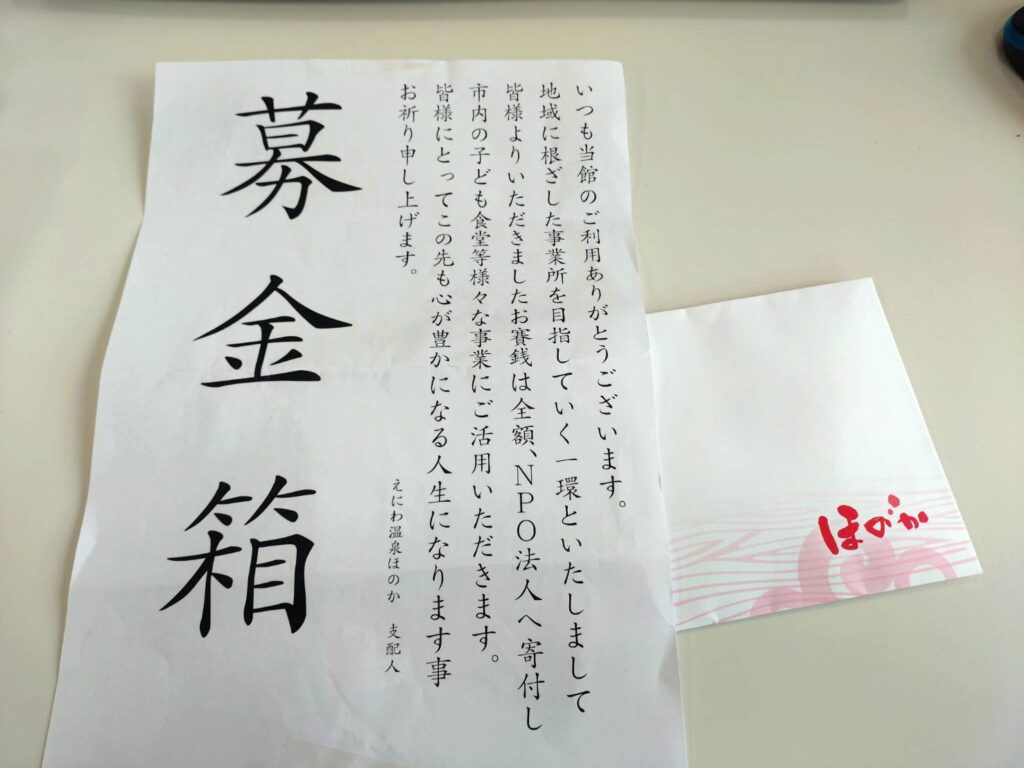 いつも当館のご利用ありがとうございます。
地域に根ざした事業所を目指していく一環といたしまして
皆様よりいただきましたお賽銭は全額、NPO法人へ寄付し
市内の子ども食堂等様々な事業にご活用いただきます。
皆様にとってこの先も心が豊かになる人生になります事
お祈り申し上げます。
えにわ温泉ほのか 支配人
募金箱
ほのか